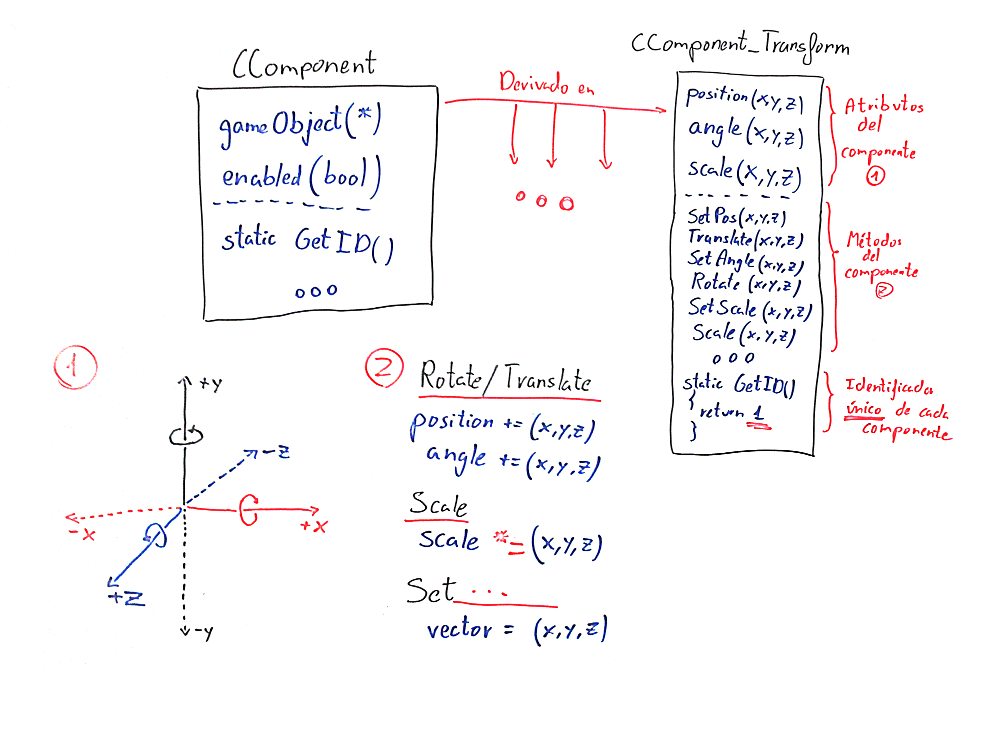 CComponent
gameObject(*)
enabled(bool)
static GetID()
ooo
Derivado en
ooo
CComponent_Transform
position(x,y,z)
angle(x,y,z)
scale(x,y,z)
SetPos(x,y,z)
Translate(x,y,z)
SetAngle(x,y,z)
Rotate(x,y,z)
SetScale(x,y,z)
Scale(x,y,z)
ooo
static GetID()
{
return 1
}
Atributos
del
componente
1
Métodos
del
componente
2
Identificador
único de cada
componente
1
+y
-z
-x
+x
+z
-y
2
Rotate/Translate
position += (x,y,z)
angle += (x,y,z)
Scale
scale *= (x,y,z)
Set ...
vector = (x,y,z)